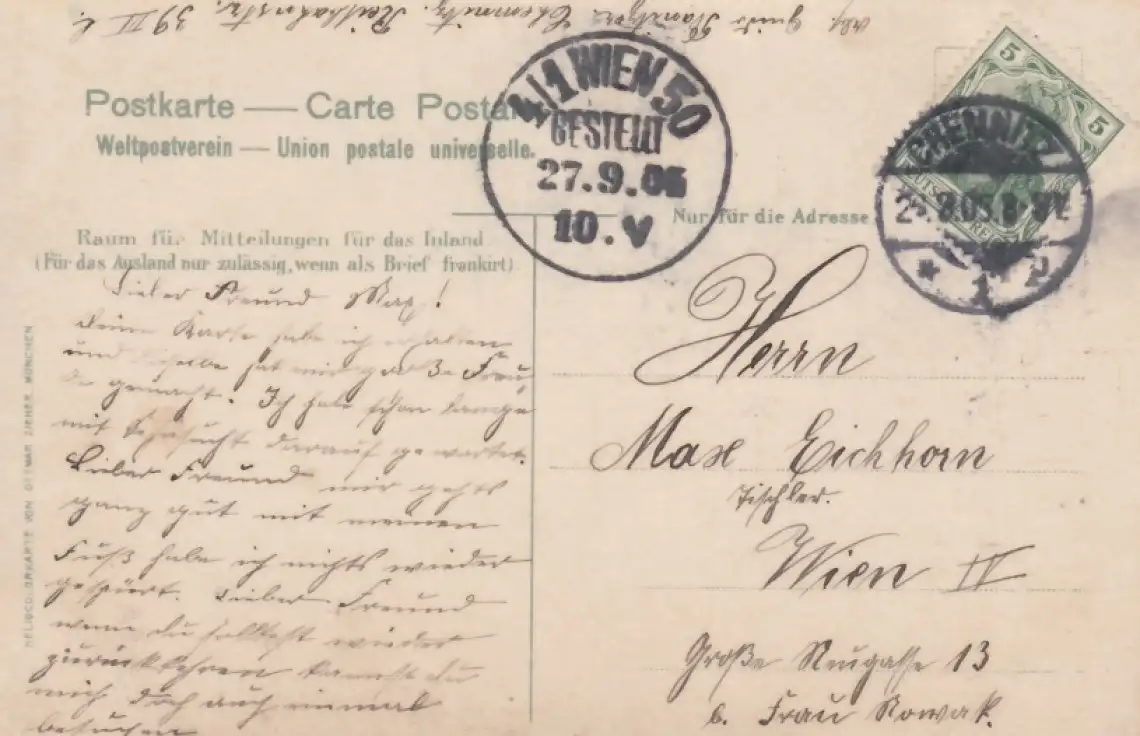 Abs. Guido Chemnitz. Reitbahnstr. 39 II l.
Postkarte — Carte Postale
Weltpostverein — Union postale universelle.
4/1 WIEN 50
BESTELLT
27.9.05
10.V
5
5
DEUTSCHES REICH
CHEMNITZ
1
Nur für die Adresse
Raum für Mitteilungen für das Inland
(Für das Ausland nur zulässig, wenn als Brief frankirt)
Lieber Freund Max!
deine Karte habe ich erhalten
und dieselbe hat mir große Freu
de gemacht. Ich habe schon lange
mit Sehnsucht darauf gewartet.
Lieber Freund mir gehts
ganz gut mit meinen
Fuß habe ich nichts wieder
gespürt. Lieber Freund
wenn du solltest wieder
zurückkehren kannst du
mich doch auch einmal
besuchen
Herrn
Max Eichhorn
Tischler.
Wien IV
Große Neugasse 13
b. Frau Nowak.
HELIOCOLORKARTE VON OTTMAR ZIEHER, MÜNCHEN